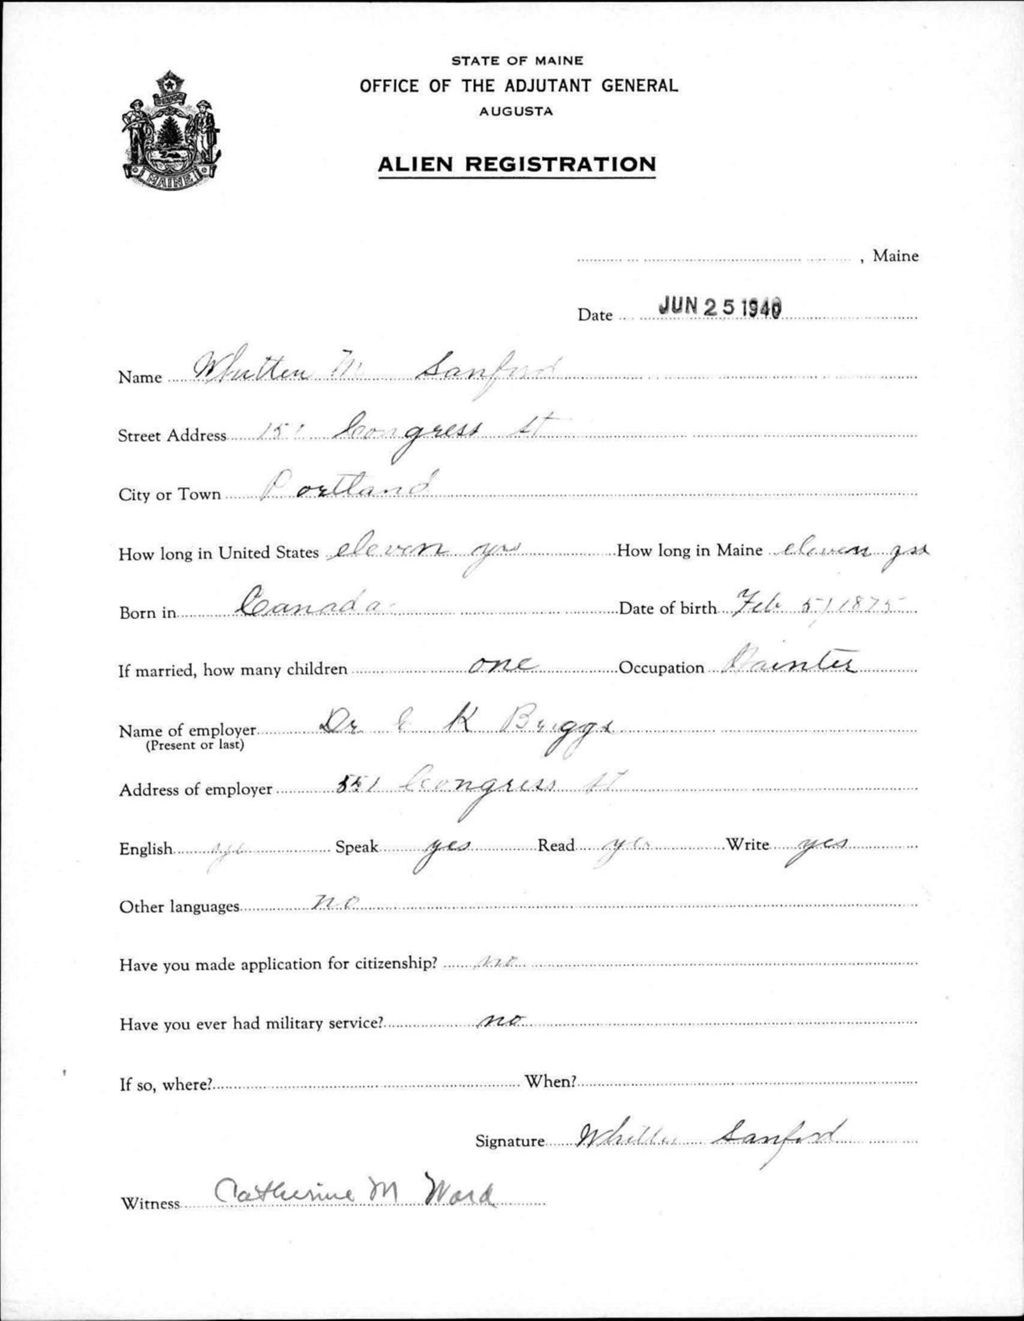 STATE OF MAINE
OFFICE OF THE ADJUTANT GENERAL
AUGUSTA
ALIEN REGISTRATION
MAINE
, Maine
Date JUN 25 1940
Name Whitten M Sanford
Street Address 151 Congress St
City or Town Portland
How long in United States eleven yrs How long in Maine eleven yrs
Born in Canada Date of birth Feb 5, 1875
If married, how many children one Occupation Painter
Name of employer Dr K Briggs
(Present or last)
Address of employer 551 Congress St
English yes Speak yes Read yes Write yes
Other languages no
Have you made application for citizenship? no
Have you ever had military service? no
If so, where? When?
Signature Whitten Sanford
Witness Catherine M Ward